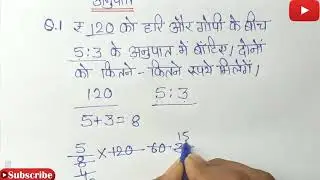 अनुपात
Q.1 ₹ 120 को हरि और गोपी के बीच
5:3 के अनुपात में बाँटिए। दोनों
को कितने-कितने रुपये मिलेंगे।
120 5:3
5+3=8
15
5/8 × 120
4
SUBSCRIBE